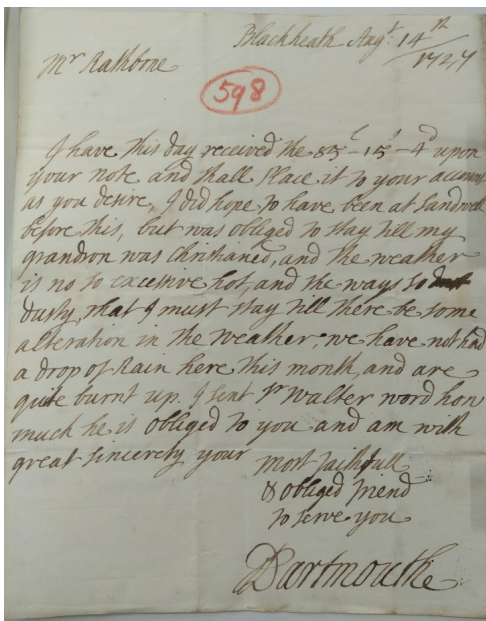 Blackheath Augt. 14th
1727
Mr Rathbone
598
I have this day received the 85l-15s-4d upon
your note and shall place it to your account
as you desire, I did hope to have been at Sandwell
before this, but was obliged to stay till my
grandson was Christianed, and the weather
is no so excessive hot, and the ways so
dusty, that I must stay till there be some
alteration in the weather; we have not had
a drop of Rain here this month, and are
quite burnt up. I sent Sr Walter word how
much he is obliged to you and am with
great sincerety your most faithfull
& obliged friend
to serve you
Dartmouth